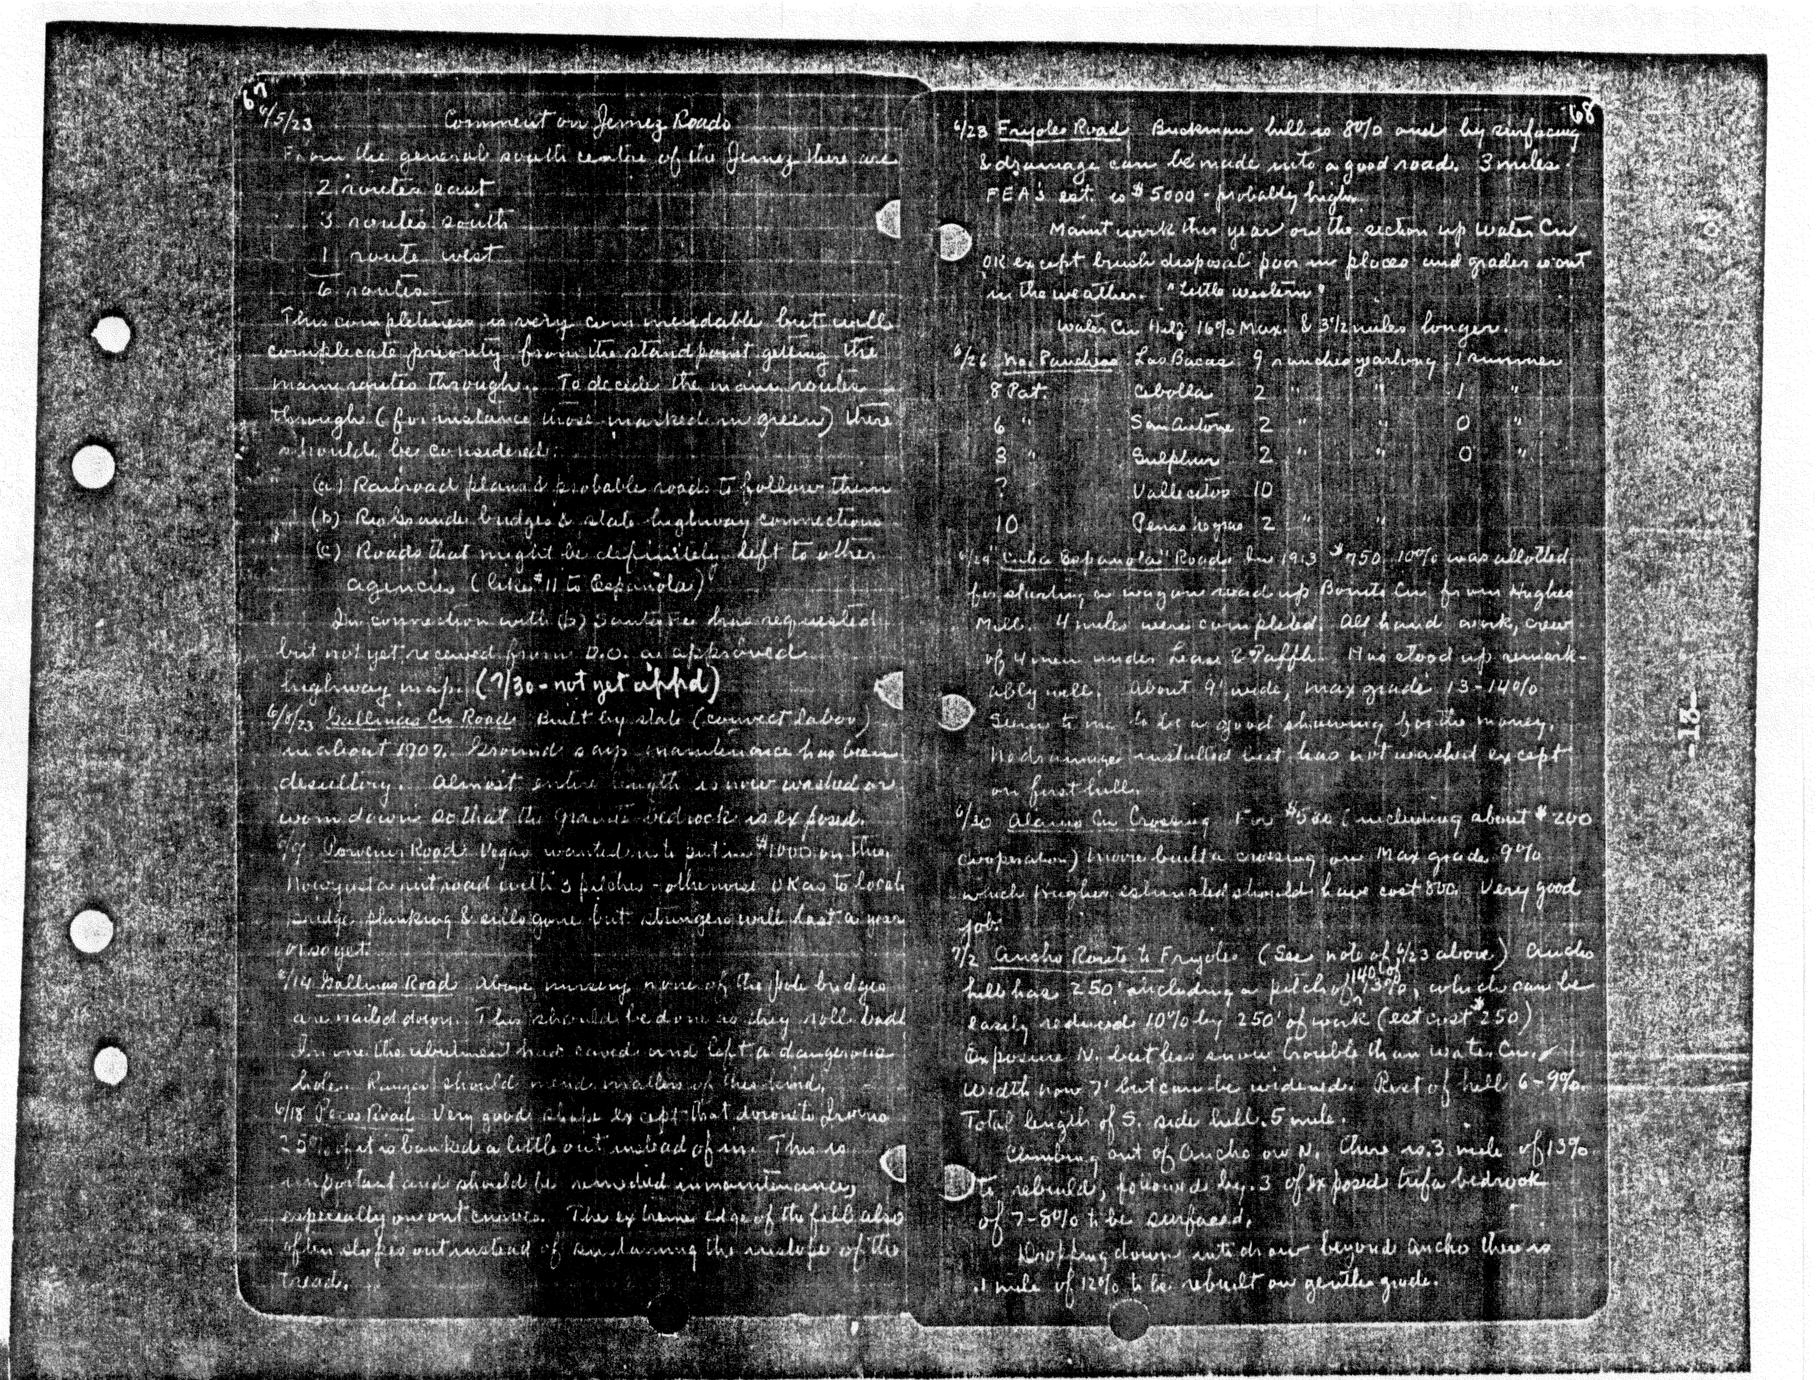 67
6/5/23 Comment on Jemez Roads
From the general south centre of the Jemez there are
2 routes east
3 routes south
1 route west
6 routes
This completeness is very commendable but will
complicate priority from the standpoint getting the
main routes through. To decide the main routes
through (for instance those marked in green) there
should be considered:
(a) Railroad plans & probable roads to follow them
(b) Rio Grande bridges & state highway connections
(c) Roads that might be definitely left to other
agencies (like #11 to Española)
In connection with (b) Santa Fe has requested
but not yet received from D.O. a approved
highway map. (7/30 - not yet appd)
6/8/23 Gallinas Cn Road Built by state (convict labor)
in about 1907. Ground says maintenance has been
desultory. Almost entire length is now washed or
worn down so that the granite bedrock is exposed.
6/9 Porvenir Road Vegas wanted us to put in $1000 on this.
Now just a rut road with 3 pitches - otherwise OK as to locat
bridge planking & sills gone but stringers will last a year
or so yet.
6/14 Gallinas Road Above nursery none of the pole bridges
are nailed down. This should be done as they roll badl
In one the abutment has caved and left a dangerous
hole. Ranger should mend matters of this kind.
6/18 Pecos Road Very good shape except that down to Irvins
25% of it is banked a little out instead of in. This is
important and should be remedied in maintenance,
especially on out curves. The extreme edge of the fill also
often slopes out instead of sustaining the inslope of the
tread.
68
6/23 Fryoles Road Buckman hill is 8% and by surfacing
& drainage can be made into a good road. 3 miles.
FEA's est. is $5000 - probably high.
Maint work this year on the section up Water Cn
OK except brush disposal poor in places and grader is out
in the weather. "Little western"
Water Cn Hill 16% Max. & 3 1/2 miles longer.
6/26 No. Ranches Las Bacas 9 ranches yearlong 1 summer
8 Pat. Cebolla 2 " " 1 "
6 " San Antone 2 " " 0 "
3 " Sulphur 2 " " 0 "
? Vallecitos 10
10 Penas Negras 2 " "
6/29 "Cuba Española" Road In 1913 $750 10% was allotted
for starting a wagon road up Bonito Cn from Hughes
Mill. 4 miles were completed. All hand work, crew
of 4 men under Lease & Paffle. Has stood up remark-
ably well. About 9' wide, max grade 13-14%
Seems to me to be a good showing for the money.
No drainage installed but has not washed except
on first hill.
6/30 Alamo Cn Crossing For $500 (including about $200
cooperation) Moore built a crossing on Max grade 9%
which Hughes estimated should have cost 800. Very good
job.
7/2 Ancho Route to Fryoles (See note of 6/23 above) Ancho
hill has 250' including a pitch of 140' of 13%, which can be
easily reduced 10% by 250' of work (est cost $250)
Exposure N. but less snow trouble than Water Cn.
Width now 7' but can be widened. Rest of hill 6-9%.
Total length of S. side hill .5 mile.
Climbing out of Ancho on N. there is .3 mile of 13%
to rebuild, followed by .3 of exposed tufa bedrock
of 7-8% to be surfaced.
Dropping down into draw beyond Ancho there is
.1 mile of 12% to be rebuilt on gentler grade.
-13-